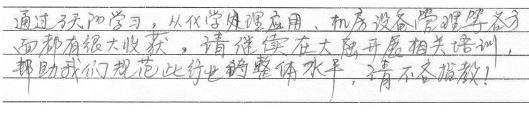 通过3天的学习，从化学处理应用、机房设备管理等各方
面都有很大收获，请继续在大连开展相关培训，
帮助我们规范此行业的整体水平，请不吝指教！